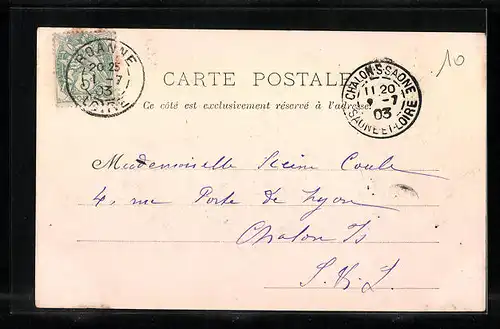 ROANNE
20 25
7 -7
03
LOIRE
10
CHALON-S-SAONE
11 20
9 -7
03
SAONE-ET-LOIRE
CARTE POSTALE
Ce côté est exclusivement réservé à l'adresse.
Mademoiselle Coule
4, rue Porte de Lyon
Chalon s/s
S. & L.